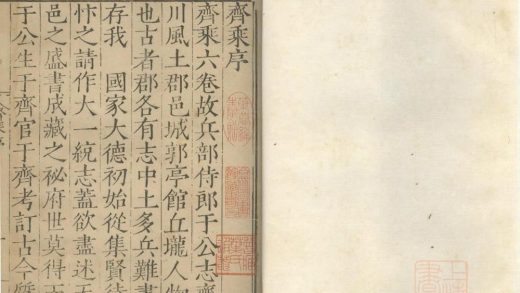 齊乘序
齊乘六卷故兵部侍郎于公志齊
川風土郡邑城郭亭館丘壠人物
也古者郡各有志中土多兵難書
存我 國家大德初始從集賢待
忭之請作大一統志蓋欲盡述天
邑之盛書成藏之秘府世莫得
于公生于齊官于齊考訂古今質